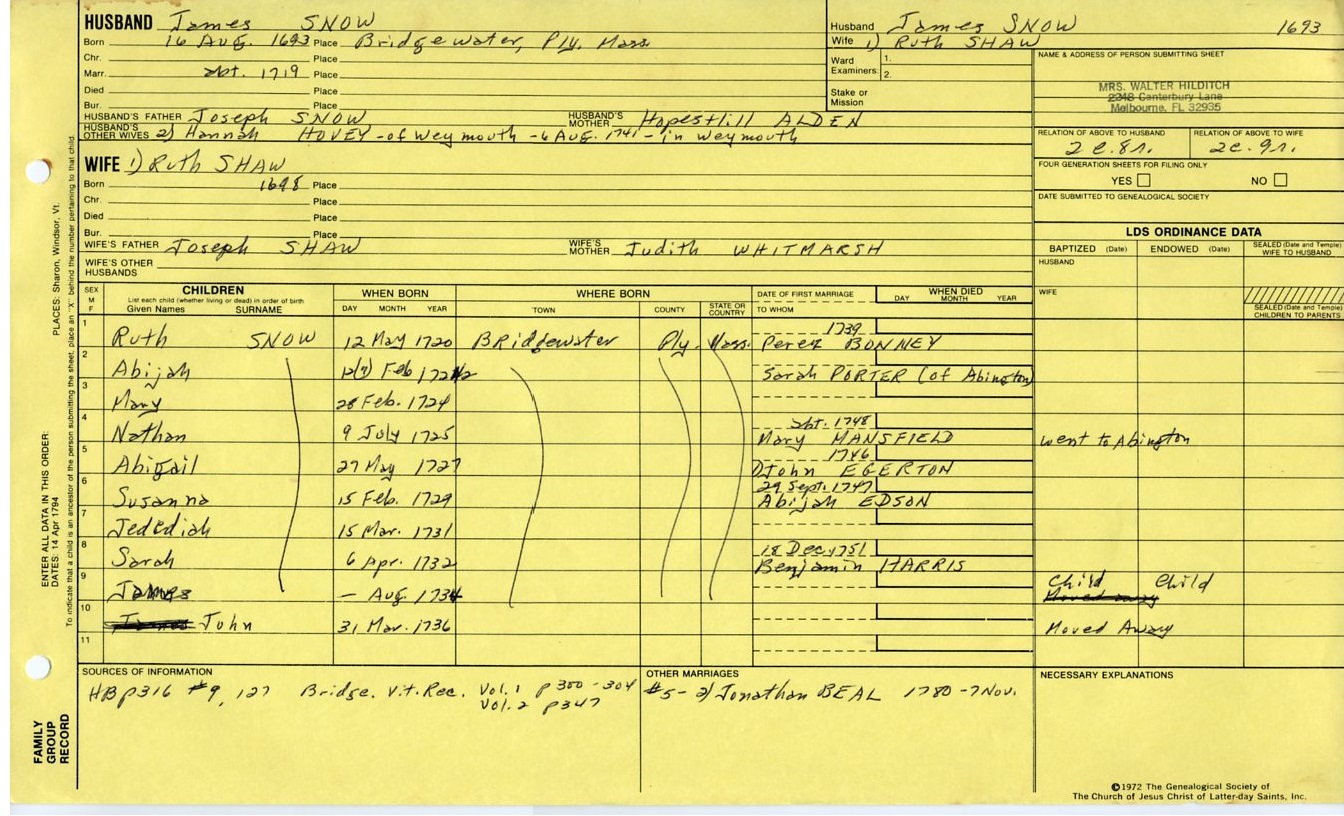 HUSBAND James SNOW
Born 16 Aug. 1693 Place Bridgewater, Ply. Mass
Chr. Place
Marr. abt. 1719 Place
Died Place
Bur. Place
HUSBAND'S FATHER Joseph SNOW HUSBAND'S MOTHER Hopestill ALDEN
HUSBAND'S OTHER WIVES 2) Hannah HOVEY - of Weymouth - 6 Aug. 1741 - in Weymouth
WIFE 1) Ruth SHAW
Born 1698 Place
Chr. Place
Died Place
Bur. Place
WIFE'S FATHER Joseph SHAW WIFE'S MOTHER Judith WHITMARSH
WIFE'S OTHER HUSBANDS
Husband James SNOW 1693
Wife 1) Ruth SHAW
Ward Examiners: 1.
2.
Stake or Mission
NAME & ADDRESS OF PERSON SUBMITTING SHEET
MRS. WALTER HILDITCH
2248 Canterbury Lane
Melbourne, FL 32935
RELATION OF ABOVE TO HUSBAND RELATION OF ABOVE TO WIFE
2c.8r. 2c.9r.
FOUR GENERATION SHEETS FOR FILING ONLY
YES NO
DATE SUBMITTED TO GENEALOGICAL SOCIETY
LDS ORDINANCE DATA
BAPTIZED (Date) ENDOWED (Date) SEALED (Date and Temple) WIFE TO HUSBAND
HUSBAND
WIFE
SEALED (Date and Temple) CHILDREN TO PARENTS
SEX M F CHILDREN WHEN BORN WHERE BORN DATE OF FIRST MARRIAGE WHEN DIED
List each child (whether living or dead) in order of birth
Given Names SURNAME DAY MONTH YEAR TOWN COUNTY STATE OR COUNTRY TO WHOM DAY MONTH YEAR
1 1739
Ruth SNOW 12 May 1720 Bridgewater Ply. Mass. Perez BONNEY
2
Abijah Feb Sarah PORTER (of Abington)
3
Mary 28 Feb. 1724
4 abt. 1748
Nathan 9 July 1725 Mary MANSFIELD went to Abington
5 1746
Abigail 27 May 1727 John EGERTON
6 29 Sept. 1747
Susanna 15 Feb. 1729 Abijah EDSON
7
Jedediah 15 Mar. 1731
8 18 Dec 1751
Sarah 6 Apr. 1732 Benjamin HARRIS
9 Child Child
James — Aug 1734 Moved away
10
James John 31 Mar. 1736 Moved Away
11
SOURCES OF INFORMATION
HB p316 #9, 127 Bridge. Vit. Rec. Vol. 1 p 300-304
Vol. 2 p347
OTHER MARRIAGES
#5 - 2) Jonathan BEAL 1780 - 7 Nov.
NECESSARY EXPLANATIONS
©1972 The Genealogical Society of
The Church of Jesus Christ of Latter-day Saints, Inc.
PLACES: Sharon, Windsor, Vt.
ENTER ALL DATA IN THIS ORDER:
DATES: 14 Apr 1794
To indicate that a child is an ancestor of the person submitting the sheet, place an "X" behind the number pertaining to that child.
FAMILY
GROUP
RECORD